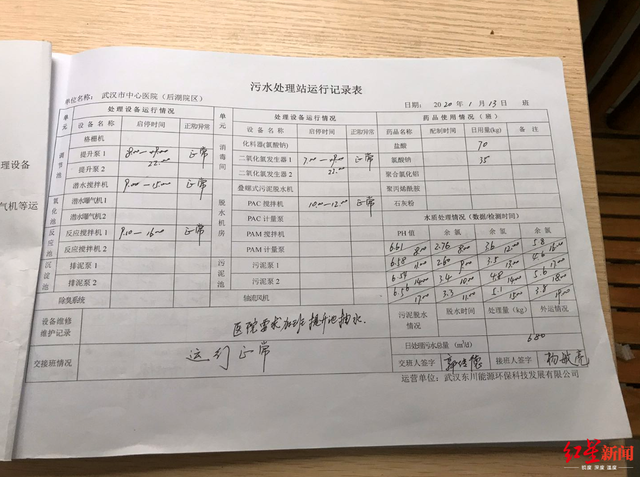 污水处理站运行记录表
单位名称: 武汉市中心医院(后湖院区)
日期: 2020年1月13日 班
单元 处理设备运行情况 单元 处理设备运行情况 药品使用情况(班)
设备名称 启停时间 正常/异常 设备名称 启停时间 正常/异常 药品名称 配制时间 日用量(kg) 备注
调节池 格栅机 消毒间 化料器(氯酸钠) 盐酸 70
提升泵1 8:00—09:00 22:00 正常 二氧化氯发生器1 7:00—09:00 22:00 正常 氯酸钠 35
提升泵2 二氧化氯发生器2 聚合氯化铝
潜水搅拌机 9:00—15:00 正常 脱水机房 叠螺式污泥脱水机 聚丙烯酰胺
氧化池 潜水曝气机1 PAC搅拌机 10:00—12:00 正常 石灰粉
潜水曝气机2 PAC计量泵 水质处理情况(数据/检测时间)
反应池 反应搅拌机1 9:10—16:00 正常 PAM搅拌机 PH值 余氯 余氯 余氯
反应搅拌机2 PAM计量泵 6.61 8:00 2.76 8:00 3.6 12:00 5.8
沉淀池 排泥泵1 污泥池 污泥泵1
排泥泵2 污泥泵2
除臭系统 轴流风机
设备维修维护记录 医院要求加班提升池抽水. 污泥脱水情况 脱水时间 处理量(kg) 外运情况
日处理污水总量(m³/d) 680
交接班情况 运行正常 交班人签字 接班人签字 杨敏亮
运营单位:武汉东川能源环保科技发展有限公司
理设备
气机等运
红星新闻
初度 深度 温度